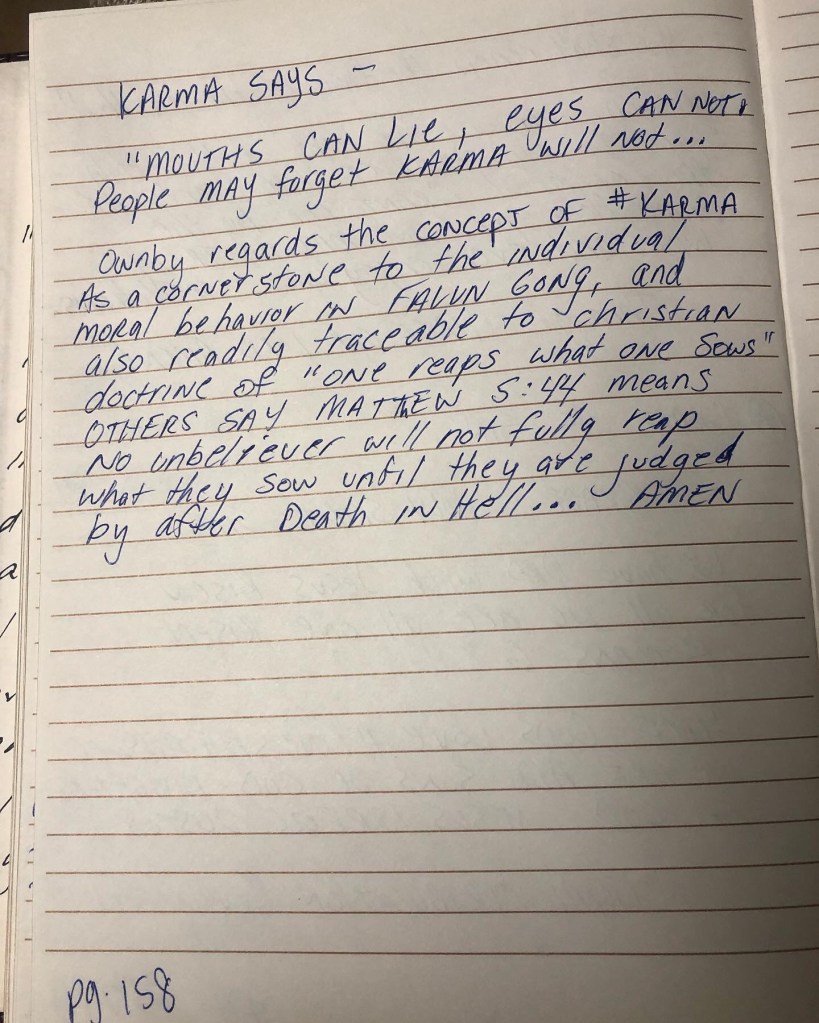 KARMA SAYS -
"MOUTHS CAN Lie, eyes CAN NOT.
People MAY forget KARMA will Not...
Ownby regards the concept OF #KARMA
As a cornerstone to the individual
moral behavior in FALUN GONG, and
also readily traceable to christian
doctrine of "one reaps what one Sows"
OTHERS SAY MATTHEW 5:44 means
No unbeliever will not fully reap
what they sow until they are judged
by after Death in Hell... AMEN
pg. 158